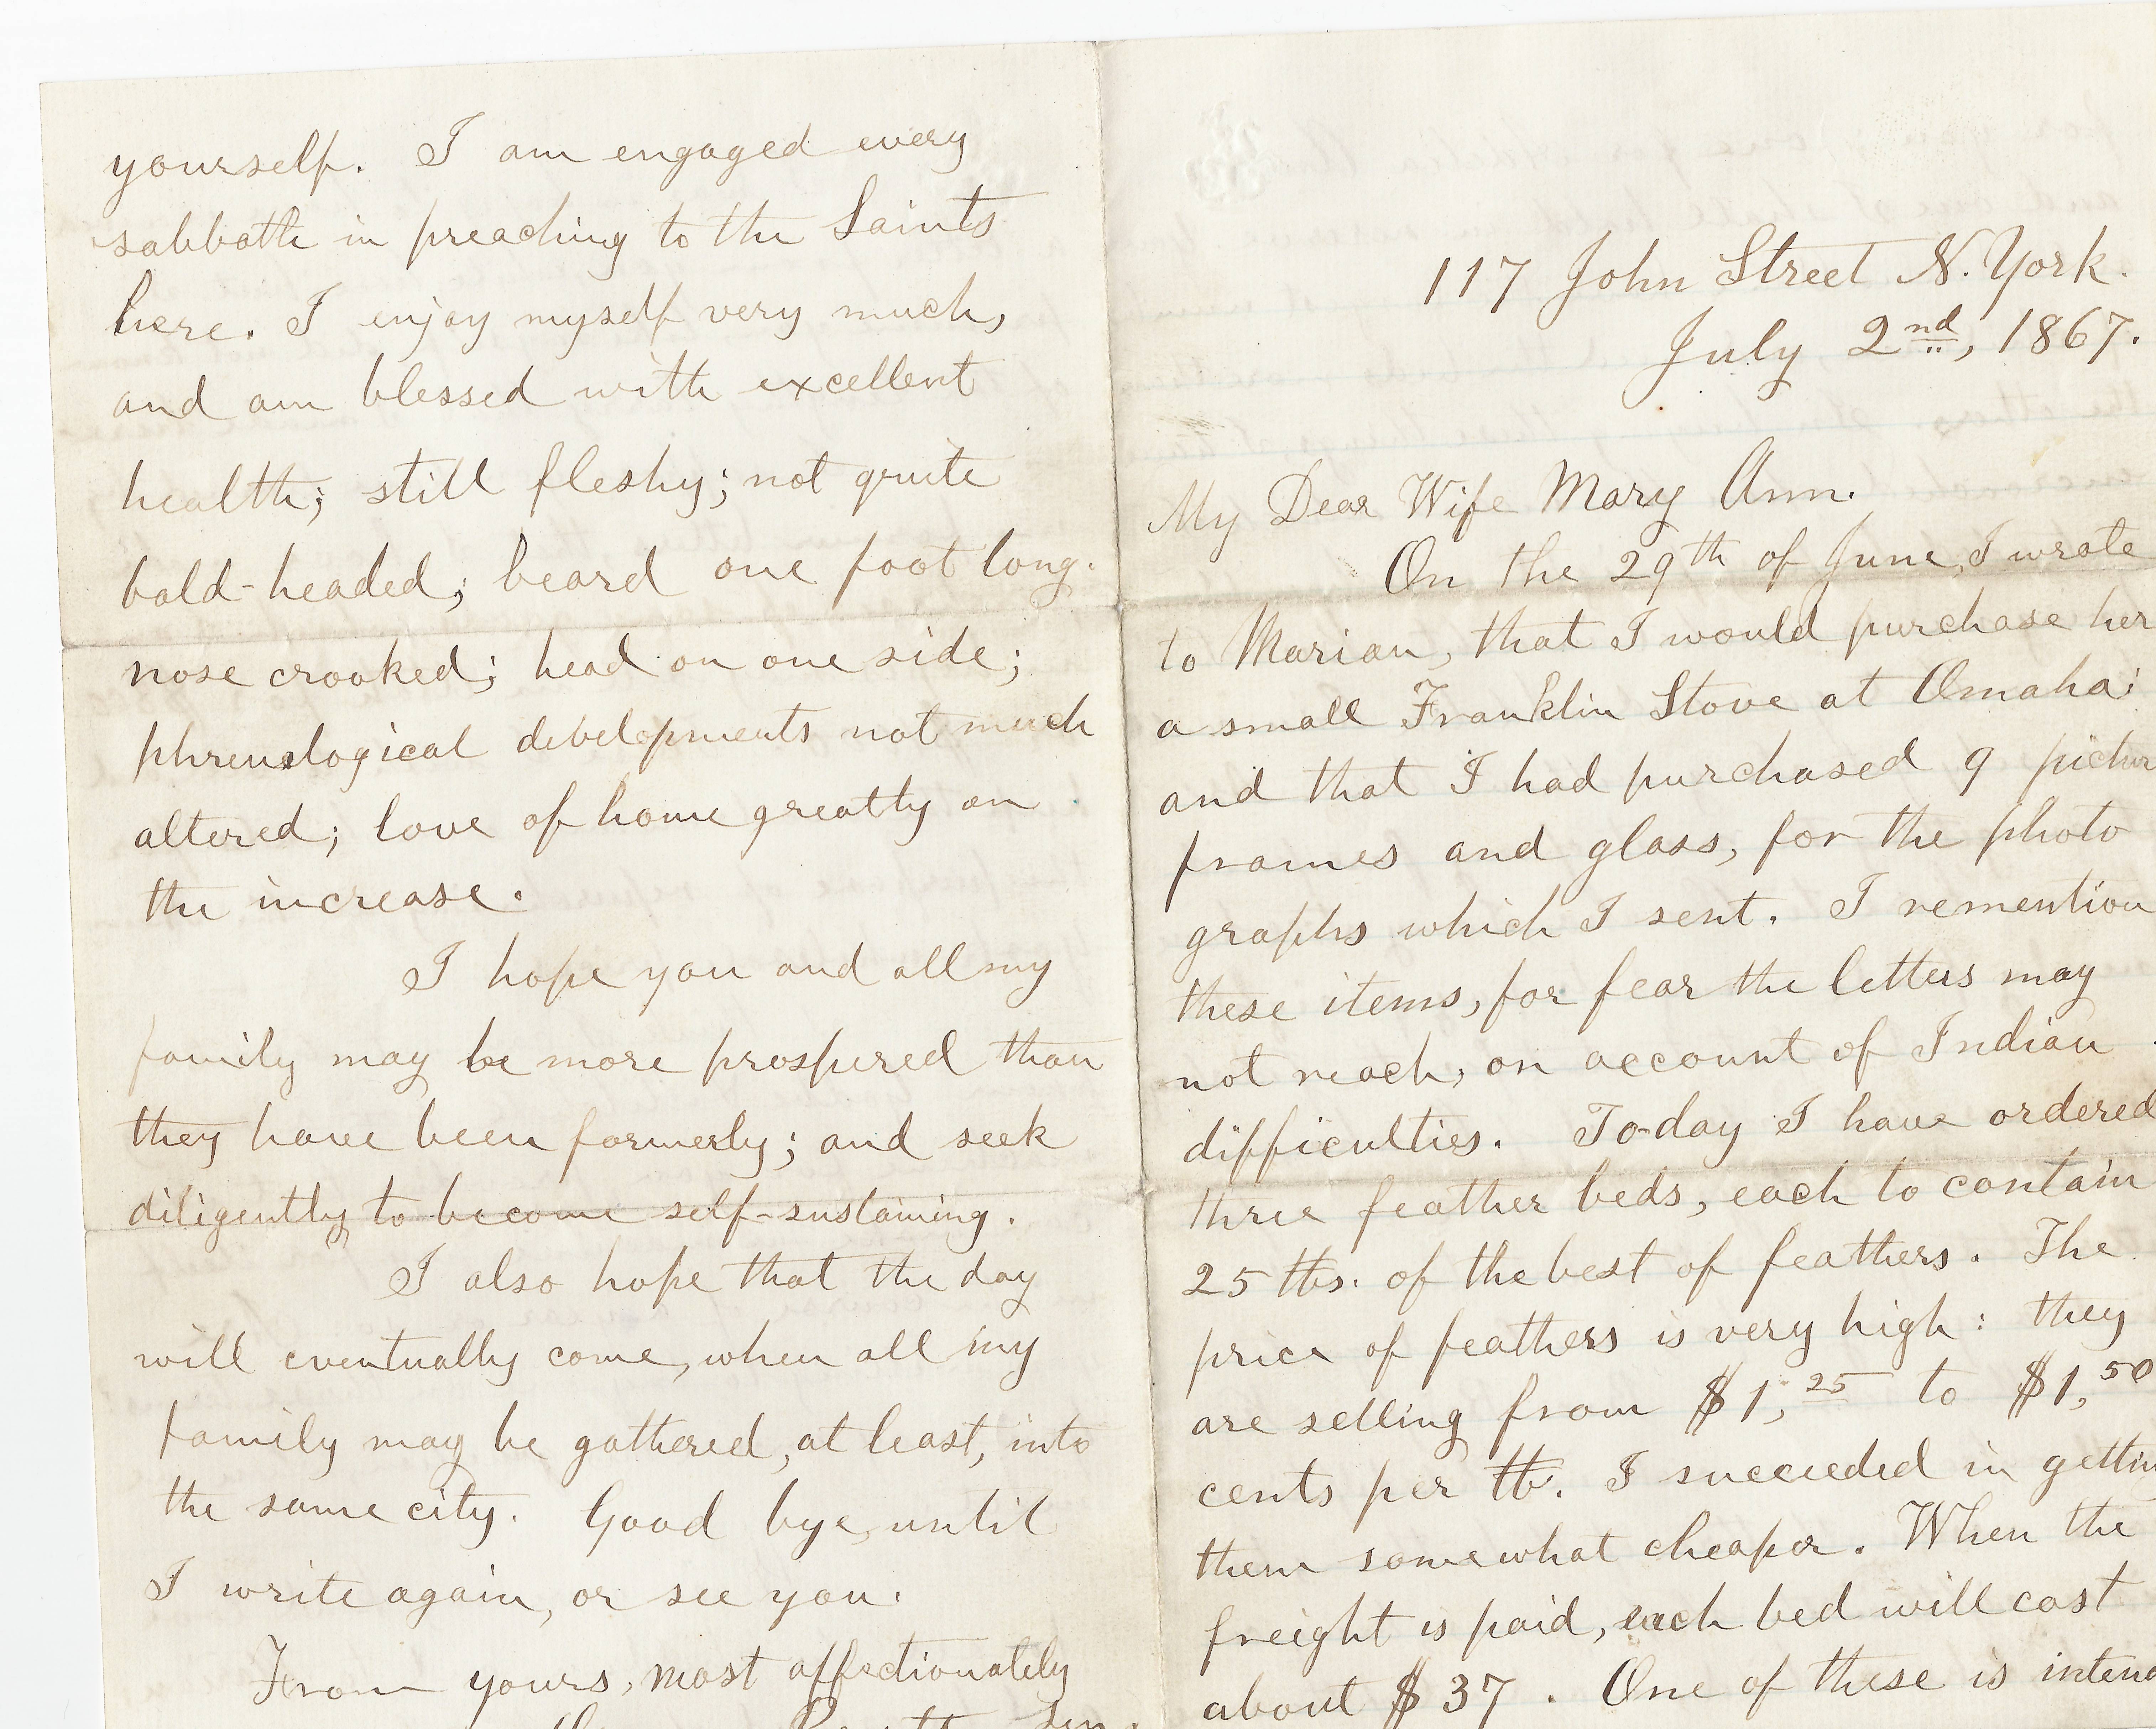 yourself. I am engaged every
sabbath in preaching to the Saints
here. I enjoy myself very much,
and am blessed with excellent
health; still fleshy; not quite
bald-headed; beard one foot long.
nose crooked; head on one side;
phrenological developments not much
altered; love of home greatly on
the increase.
I hope you and all my
family may be more prospered than
they have been formerly; and seek
diligently to become self-sustaining.
I also hope that the day
will eventually come, when all my
family may be gathered, at least, into
the same city. Good bye, until
I write again, or see you.
From yours, most affectionately
117 John Street N. York.
July 2nd, 1867.
My Dear Wife Mary Ann.
On the 29th of June, I wrote
to Marian, that I would purchase her
a small Franklin Stove at Omaha;
and that I had purchased 9 pictur
frames and glass, for the photo
graphs which I sent. I remention
these items, for fear the letters may
not reach, on account of Indian
difficulties. To-day I have ordered
three feather beds, each to contain
25 lbs. of the best of feathers. The
price of feathers is very high: they
are selling from $1,25 to $1,50
cents per lb. I succeeded in gettin
them somewhat cheaper. When the
freight is paid, each bed will cost
about $37. One of these is intend